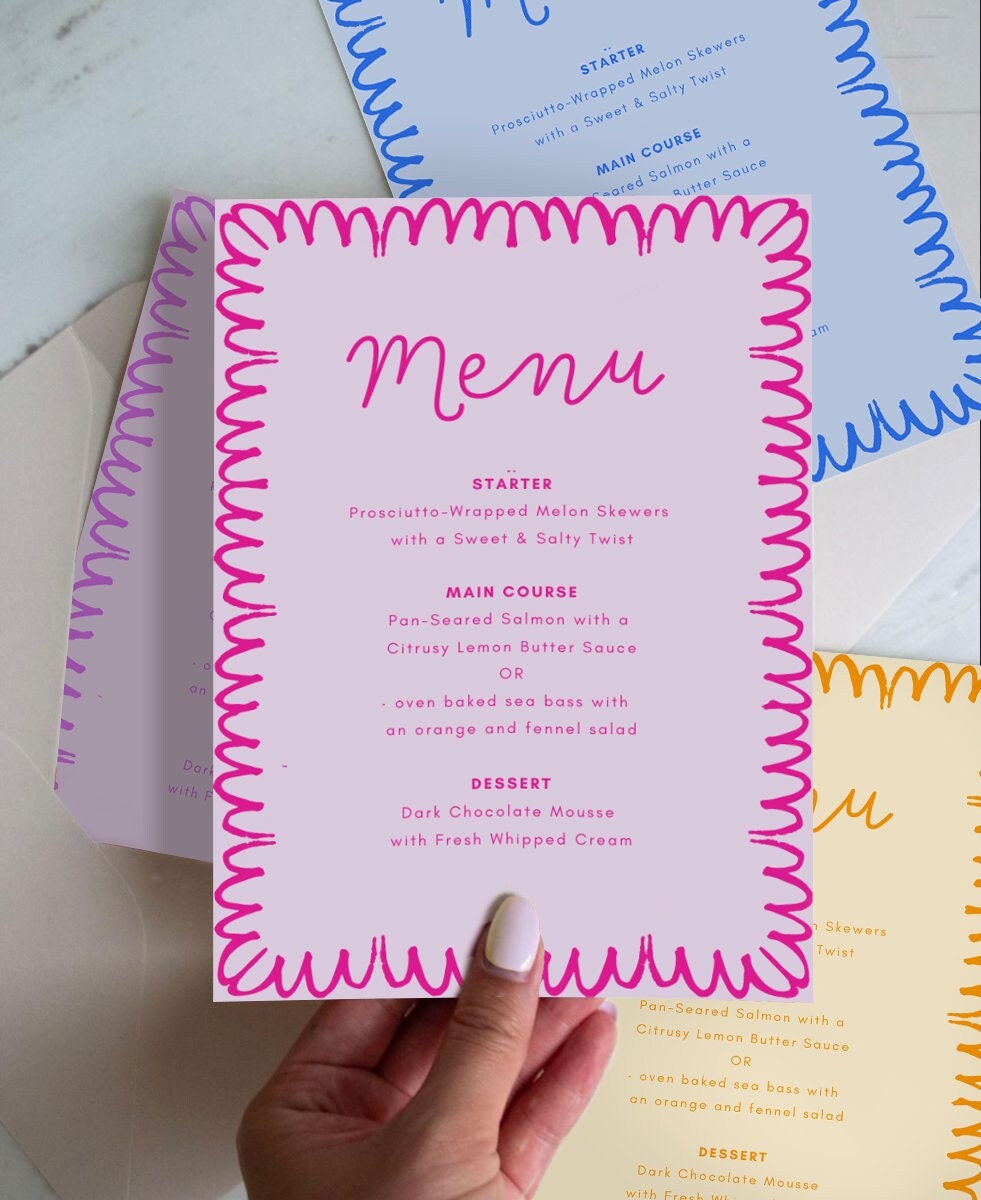 STARTER
Prosciutto-Wrapped Melon Skewers
with a Sweet & Salty Twist
MAIN COURSE
Seared Salmon with a
Butter Sauce
Menu
STARTER
Prosciutto-Wrapped Melon Skewers
with a Sweet & Salty Twist
MAIN COURSE
Pan-Seared Salmon with a
Citrusy Lemon Butter Sauce
OR
- oven baked sea bass with
an orange and fennel salad
DESSERT
Dark Chocolate Mousse
with Fresh Whipped Cream
- o
an
Dark
with F
Skewers
Twist
Pan-Seared Salmon with a
Citrusy Lemon Butter Sauce
OR
- oven baked sea bass with
an orange and fennel salad
DESSERT
Dark Chocolate Mousse
with Fresh Whipped Cream